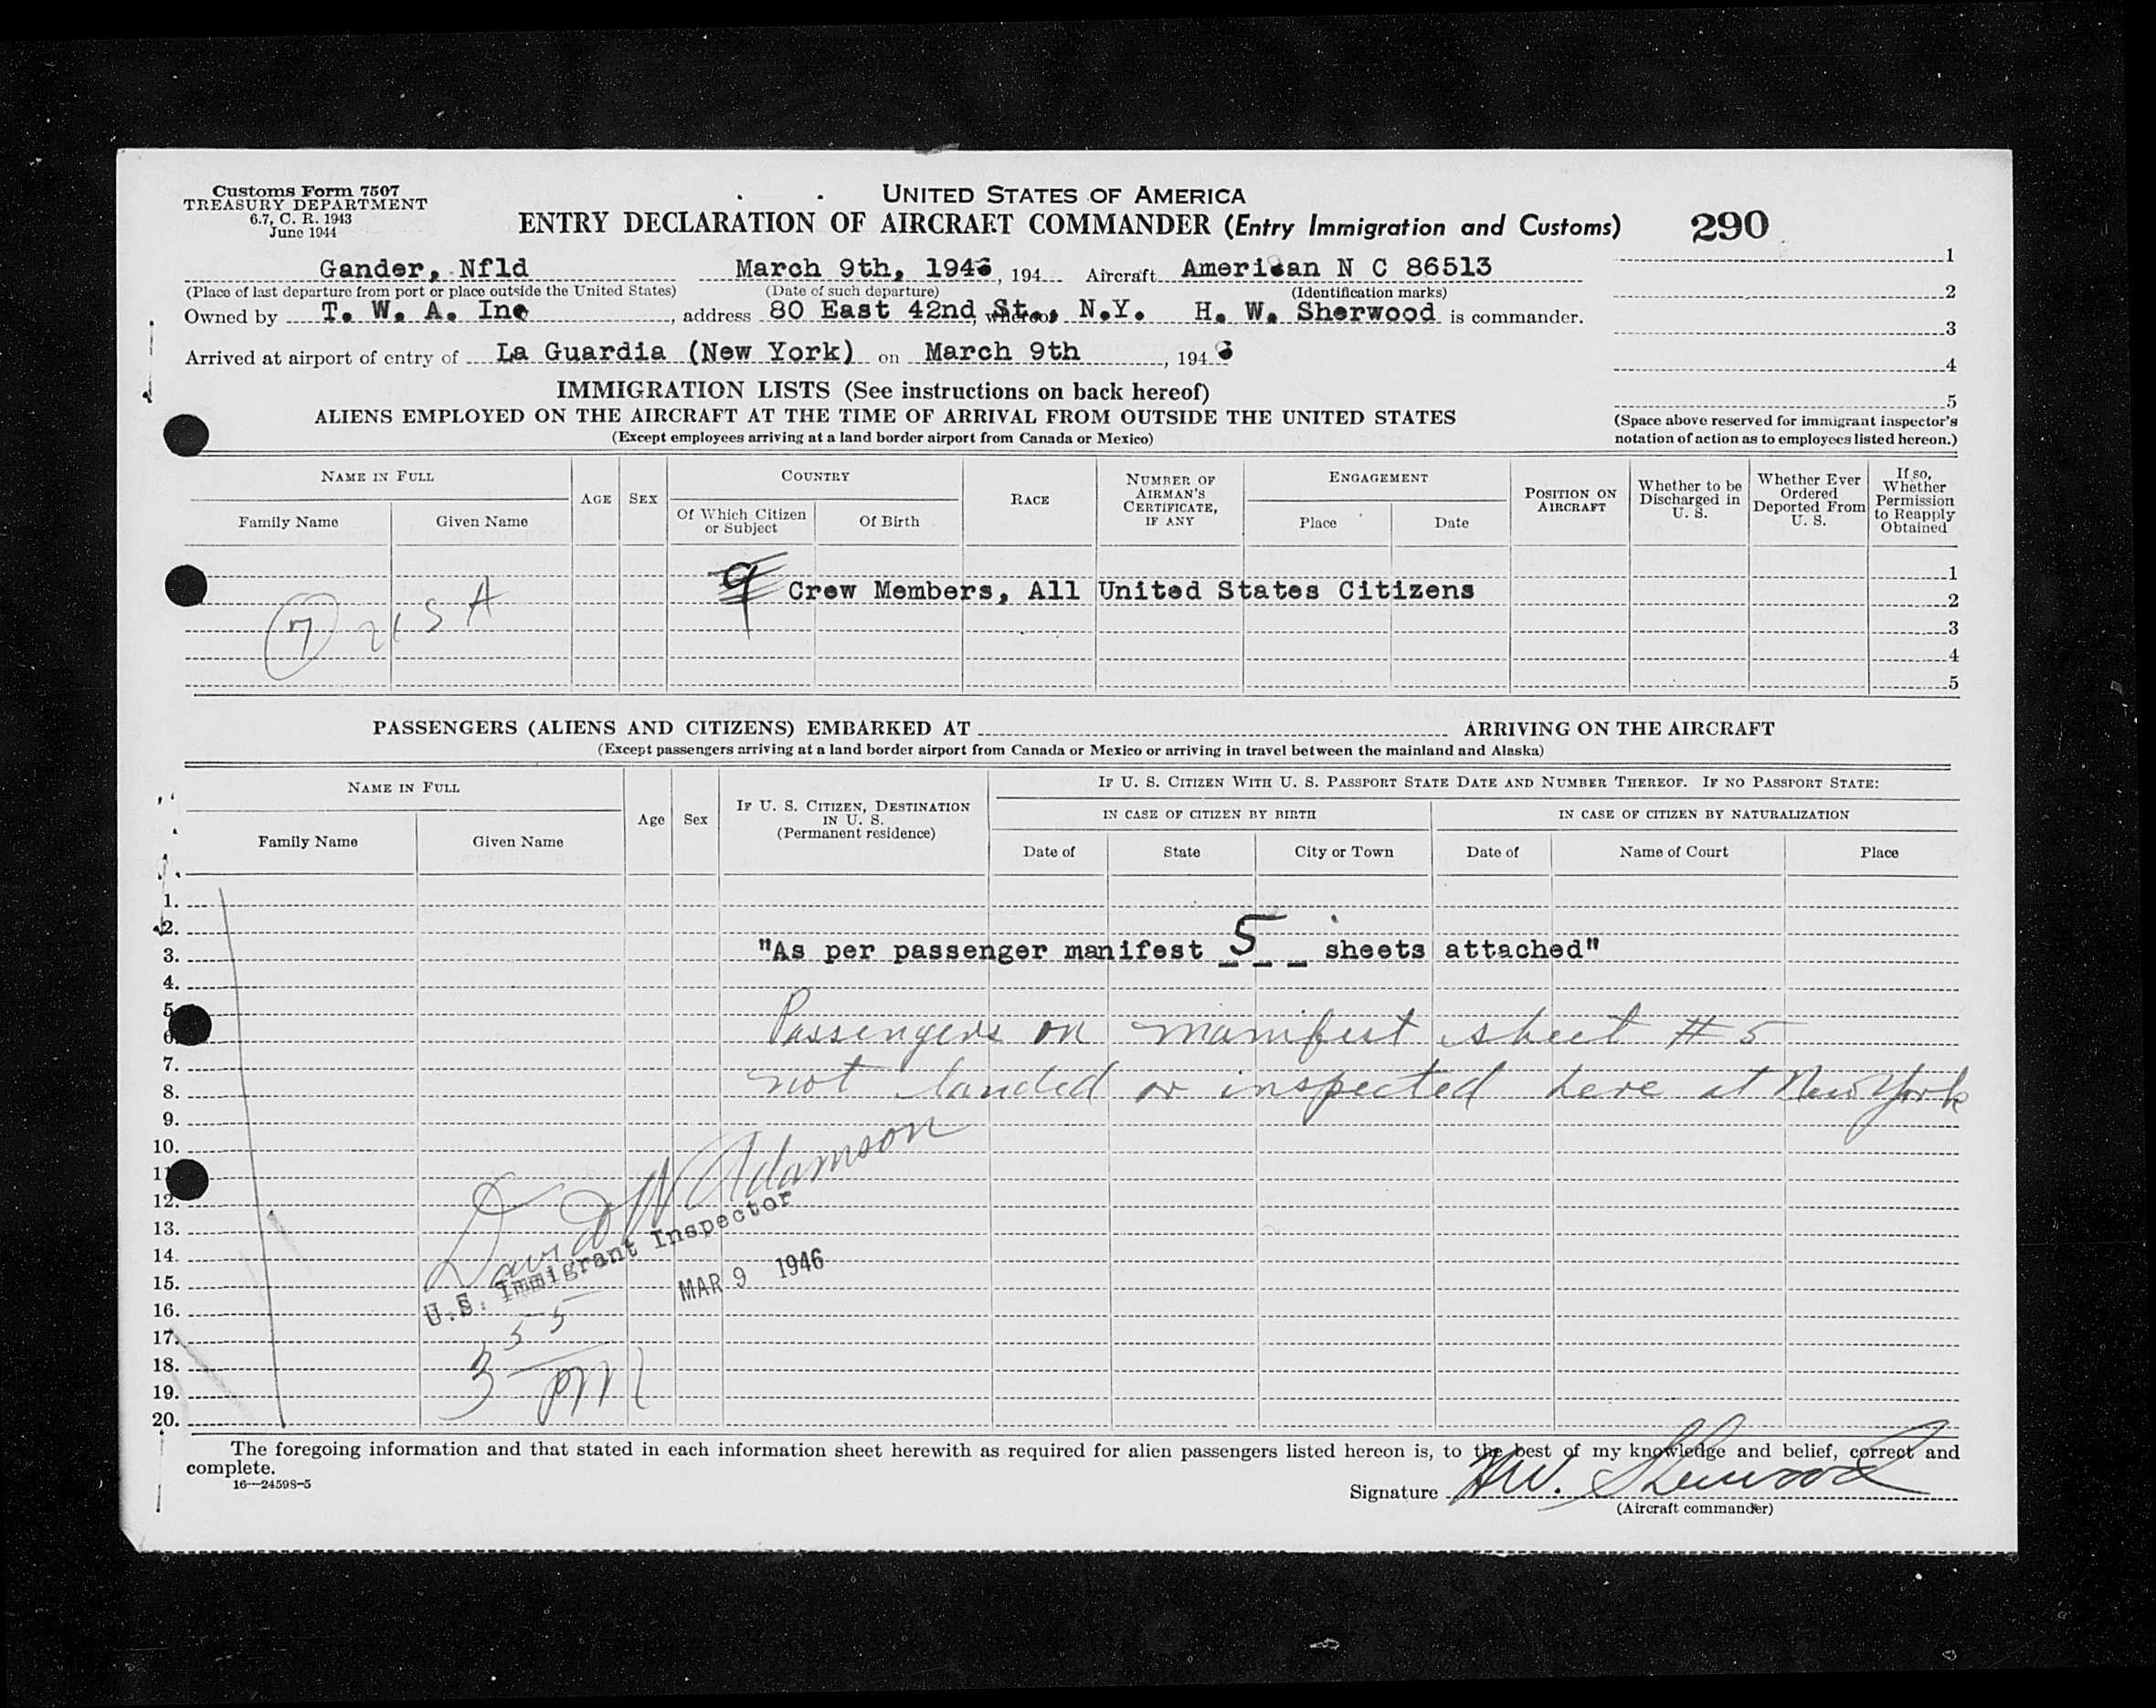 Customs Form 7507
TREASURY DEPARTMENT
6.7, C. R. 1943
June 1944
UNITED STATES OF AMERICA
ENTRY DECLARATION OF AIRCRAFT COMMANDER (Entry Immigration and Customs)
290
Gander, Nfld March 9th, 1946, 194 Aircraft American N C 86513
(Place of last departure from port or place outside the United States) (Date of such departure) (Identification marks)
Owned by T. W. A. Inc, address 80 East 42nd St., N.Y. whereof H. W. Sherwood is commander.
Arrived at airport of entry of La Guardia (New York) on March 9th, 1946
1
2
3
4
5
(Space above reserved for immigrant inspector's
notation of action as to employees listed hereon.)
IMMIGRATION LISTS (See instructions on back hereof)
ALIENS EMPLOYED ON THE AIRCRAFT AT THE TIME OF ARRIVAL FROM OUTSIDE THE UNITED STATES
(Except employees arriving at a land border airport from Canada or Mexico)
NAME IN FULL
Family Name Given Name
AGE
SEX
COUNTRY
Of Which Citizen or Subject
Of Birth
RACE
NUMBER OF AIRMAN'S CERTIFICATE, IF ANY
ENGAGEMENT
Place Date
POSITION ON AIRCRAFT
Whether to be Discharged in U. S.
Whether Ever Ordered Deported From U. S.
If so, Whether Permission to Reapply Obtained
9 Crew Members, All United States Citizens
7 USA
1
2
3
4
5
PASSENGERS (ALIENS AND CITIZENS) EMBARKED AT ARRIVING ON THE AIRCRAFT
(Except passengers arriving at a land border airport from Canada or Mexico or arriving in travel between the mainland and Alaska)
NAME IN FULL
Family Name Given Name
Age
Sex
IF U. S. CITIZEN, DESTINATION IN U. S.
(Permanent residence)
IF U. S. CITIZEN WITH U. S. PASSPORT STATE DATE AND NUMBER THEREOF. IF NO PASSPORT STATE:
IN CASE OF CITIZEN BY BIRTH IN CASE OF CITIZEN BY NATURALIZATION
Date of State City or Town Date of Name of Court Place
1.
2.
3. "As per passenger manifest 5 sheets attached"
4.
5.
6. Passengers on manifest sheet # 5
7.
8. not landed or inspected here at New York
9.
10.
11.
12.
13.
14.
15.
16.
17.
18.
19.
20.
David W Adamson
U.S. Immigrant Inspector
MAR 9 1946
3 55 pm
The foregoing information and that stated in each information sheet herewith as required for alien passengers listed hereon is, to the best of my knowledge and belief, correct and
complete.
16—24598-5
Signature H.W. Sherwood
(Aircraft commander)